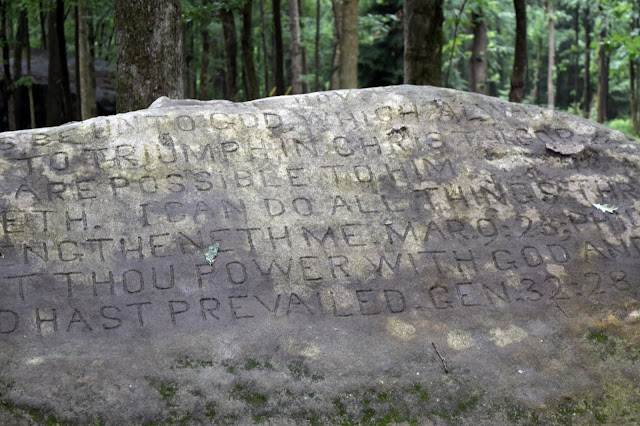 S BE UNTO GOD, WHICH AL
TO TRIUMPH IN CHRIST. 1 COR
ARE POSSIBLE TO HIM
ETH. I CAN DO ALL THINGS THR
ING THENETH ME. MAR. 9:23; PHIL
T THOU POWER WITH GOD AN
D HAST PREVAILED. GEN. 32:28